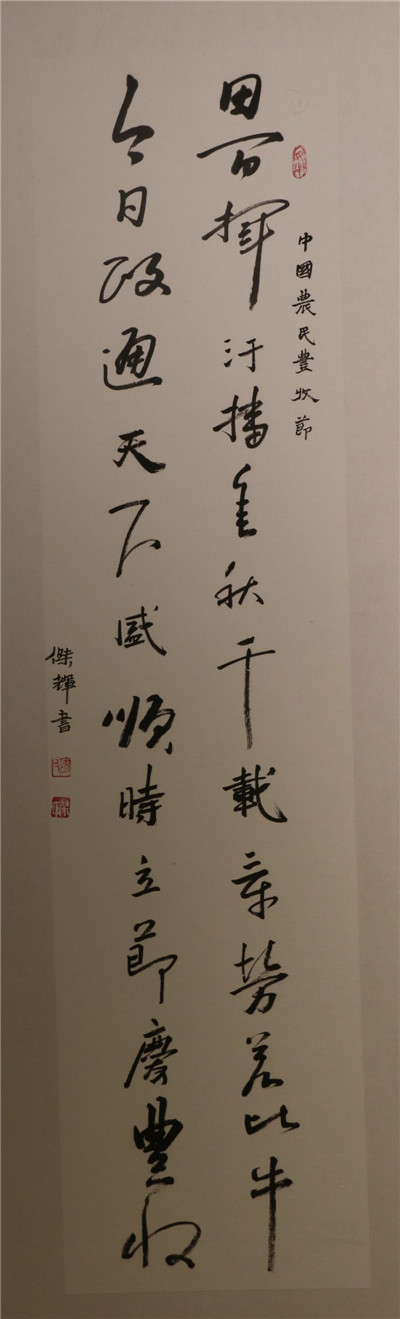 中國農民豐收節
田間揮汗播金秋千載辛勞若比牛
今日政通天下盛順時立節慶豐收
傑輝書